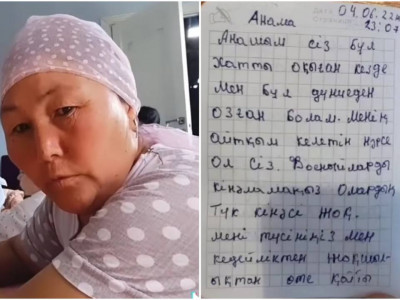 Анама
04.06.22
23:07
Анашым сіз бұл
хатты оқыған кезде
мен бұл дүниеден
озған болам. менің
айтқым келетін нәрсе
ол сіз. Военныйларды
кінәламаңыз олардың
түк кінәсі жоқ.
мені түсініңіз мен
кедейліктен жоқшыл-
ықтан өте қатты